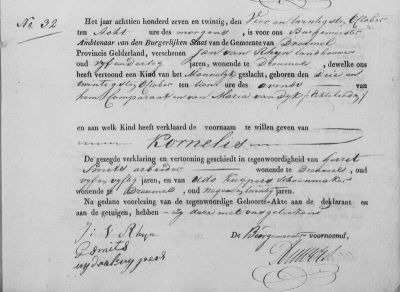 No 32
Het jaar achttien honderd zeven en twintig, den Vier en twintigsten October
ten Acht ure des morgens, is voor ons Burgemeester
Ambtenaar van den Burgerlijken Staat van de Gemeente van Dreumel
Provincie Gelderland, verschenen Jan van Rhijn landbouwer
oud vyf en dertig jaren, wonende te Dreumel, dewelke ons
heeft vertoond een Kind van het Mannelyk geslacht, geboren den Drie en
twintigsten October ten tien ure des avonds van
hem Comparant en van Maria van Dyk, Echtelieden
en aan welk Kind heeft verklaard de voornaam te willen geven van
Kornelis
De gezegde verklaring en vertooning geschiedt in tegenwoordigheid van Gerrit
Smits arbeider wonende te Dreumel, oud
vyf en vyftig jaren, en van Udo Kuypers Schoenmaker
wonende te Dreumel, oud Negen en twintig jaren.
Na gedane voorlezing van de tegenwoordige Geboorte-Akte aan de deklarant en
aan de getuigen, hebben zy deze met ons getekend
De Burgemeester voornoemd,
J: V Rhyn
G Smits